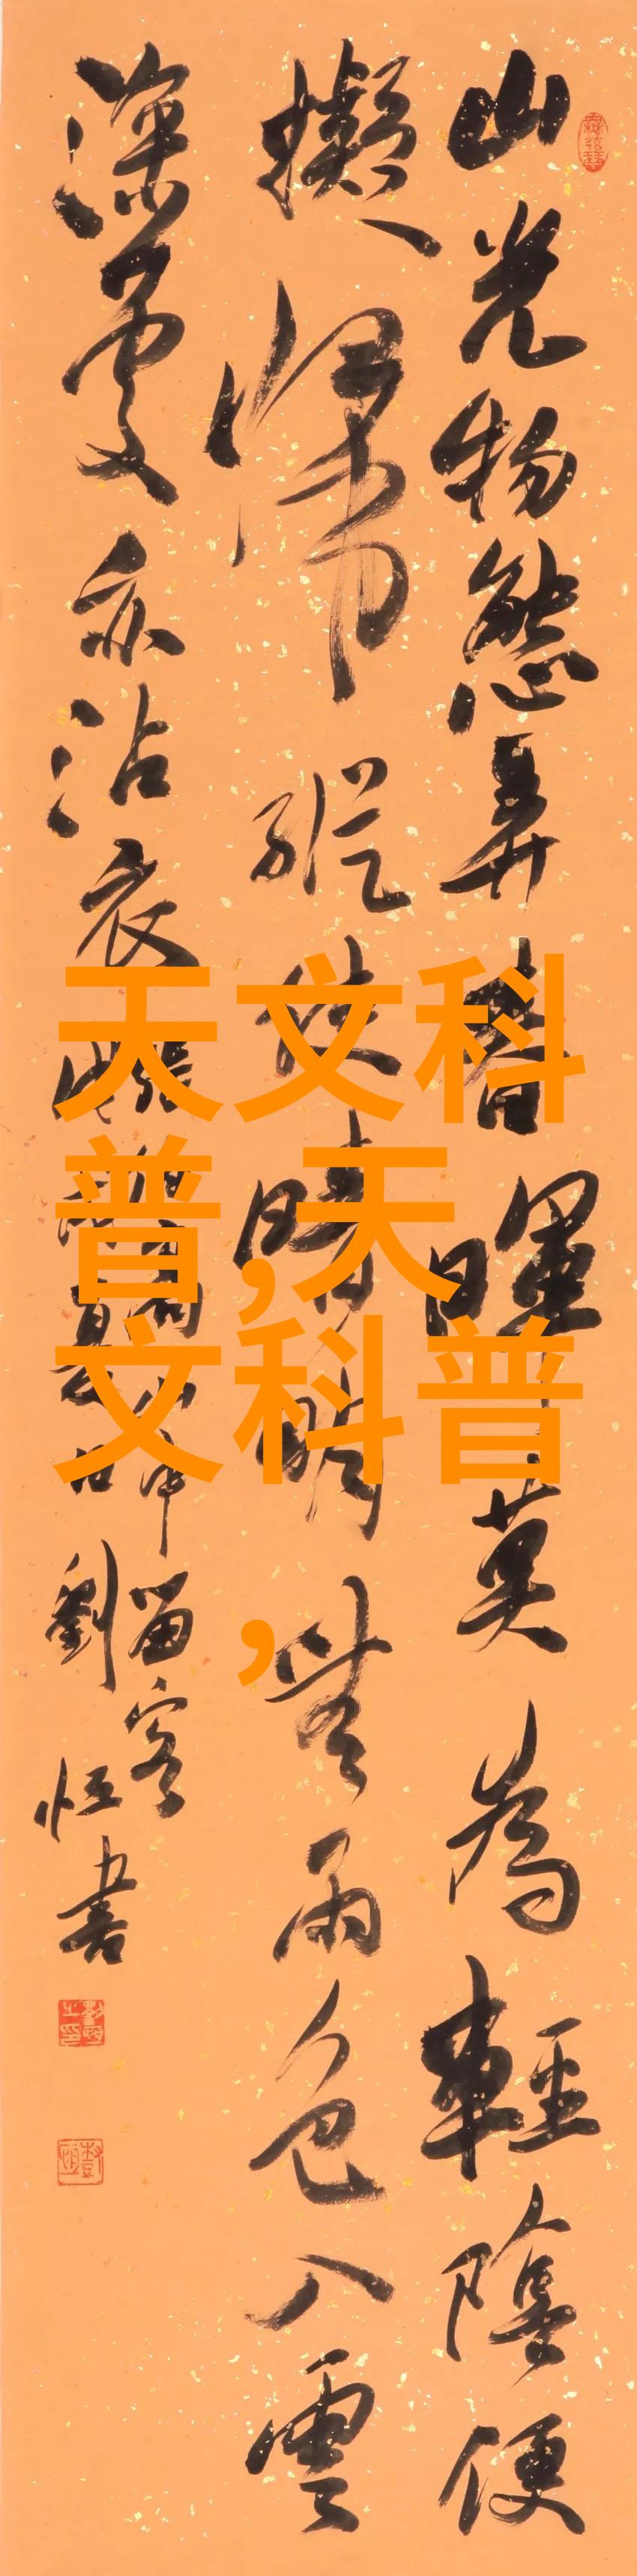 山光物態弄春暉莫為輕陰便
擬歸縱使晴明無雨色入雲
深處亦沾衣
張旭山中留客
劉恒書
天文科
普,天
文科普
,